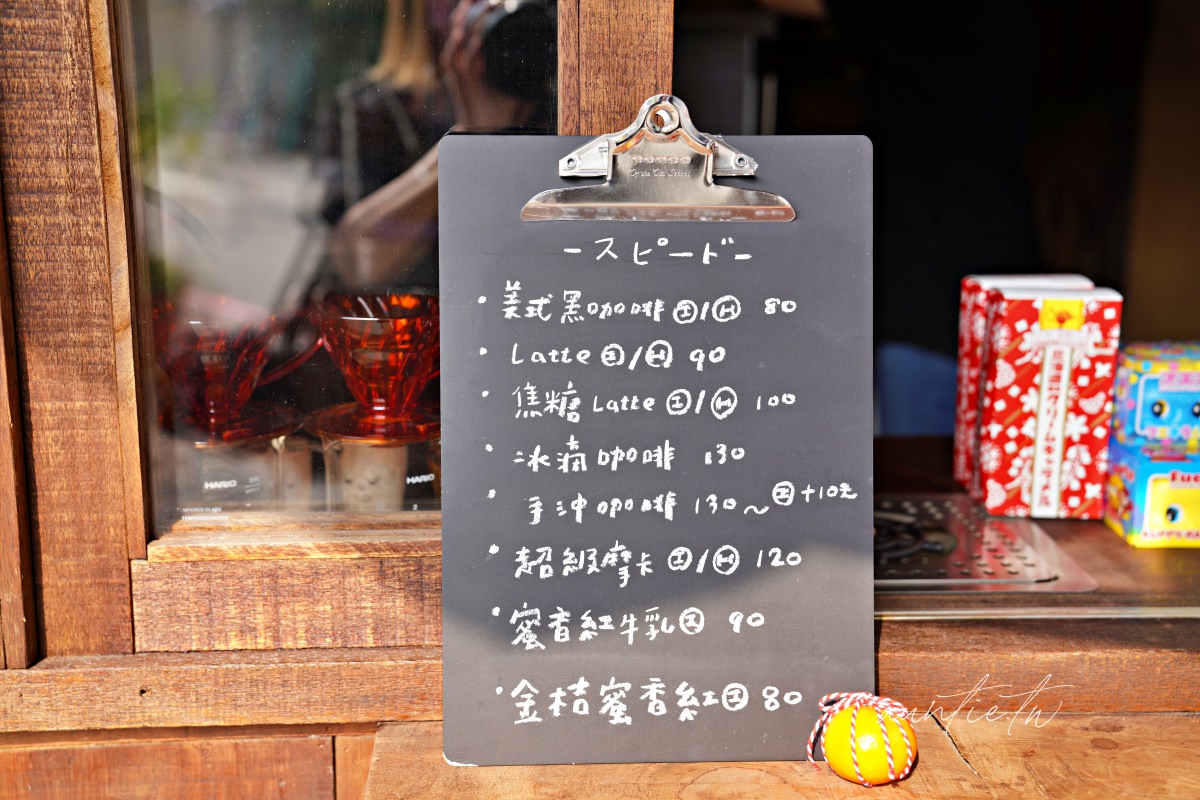 ースピードー
・美式黑咖啡 Ⓘ/Ⓗ 80
・Latte Ⓘ/Ⓗ 90
・焦糖 Latte Ⓘ/Ⓗ 100
・冰滴咖啡 130
・手沖咖啡 130～Ⓘ+10元
・超級摩卡 Ⓘ/Ⓗ 120
・蜜香紅牛乳 Ⓘ 90
・金桔蜜香紅 Ⓘ 80
HARIO
HARIO
auntie.tw